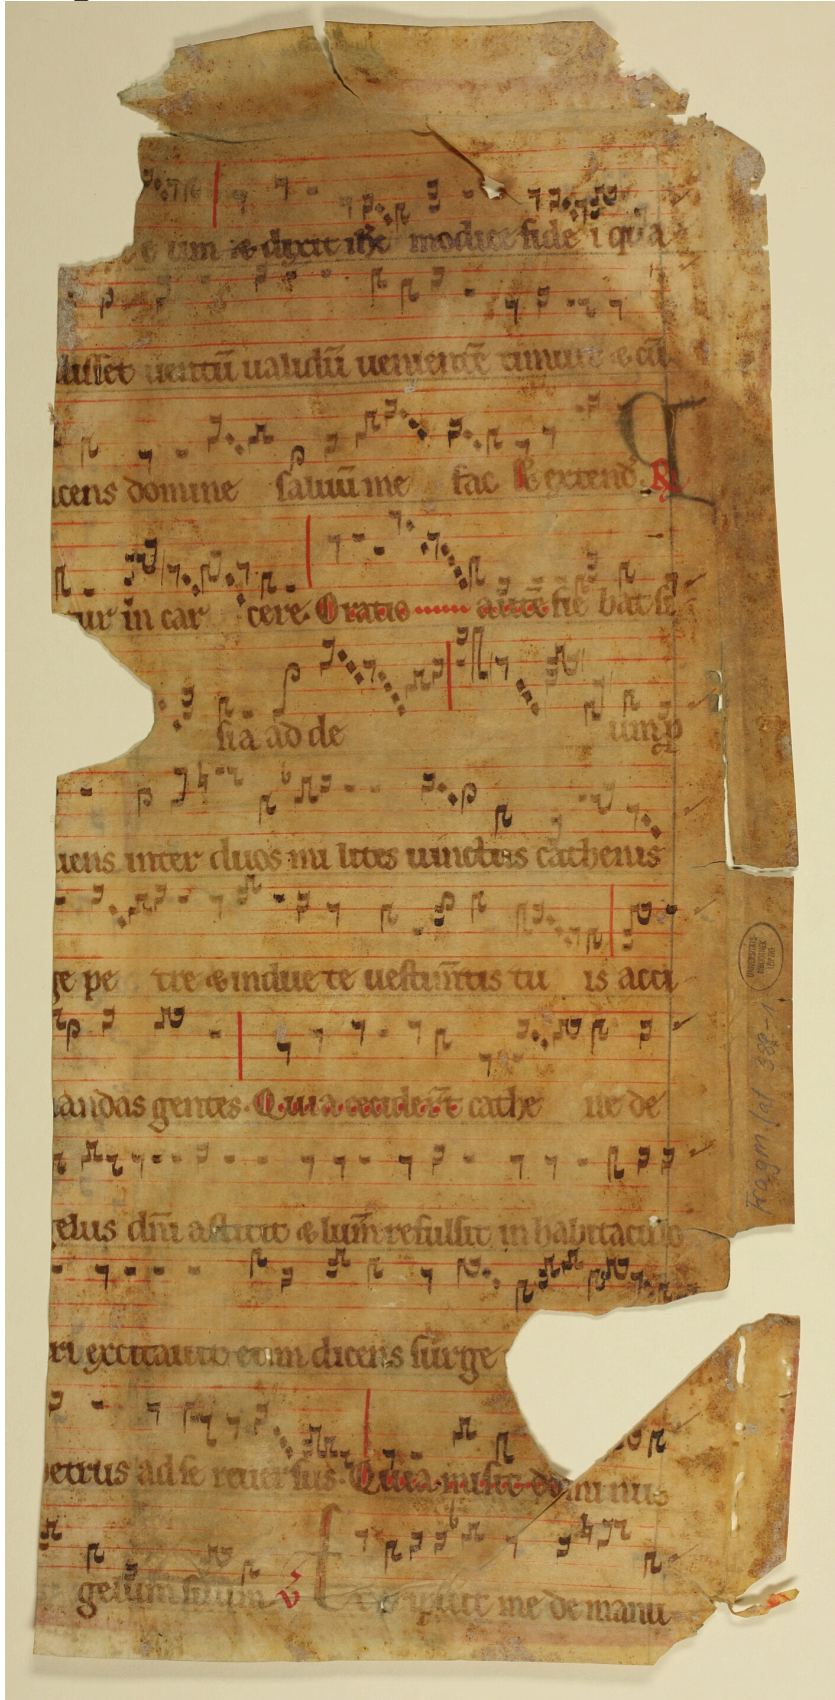 e um & dixit ihc modice fidei qua
disset ventū validū venientē timuit & cū
icens domine salvum me fac R extend. R
tur in car cere. Oratio autē fie bat si
sia ad de um p
iens inter duos mi lites vinctus cathenis
ge pe tre & indue te vestim̄tis tu is acci
andas gentes. Quia cecider̄t cathe ne de
gelus dn̄i astitit & lum̄ refulsit in habitaculo
ri excitavit eum dicens surge
petrus ad se rever sus. Quia misit dominus
gelum suum v Et eripuit me de manu
Fragm. lat. 382-1